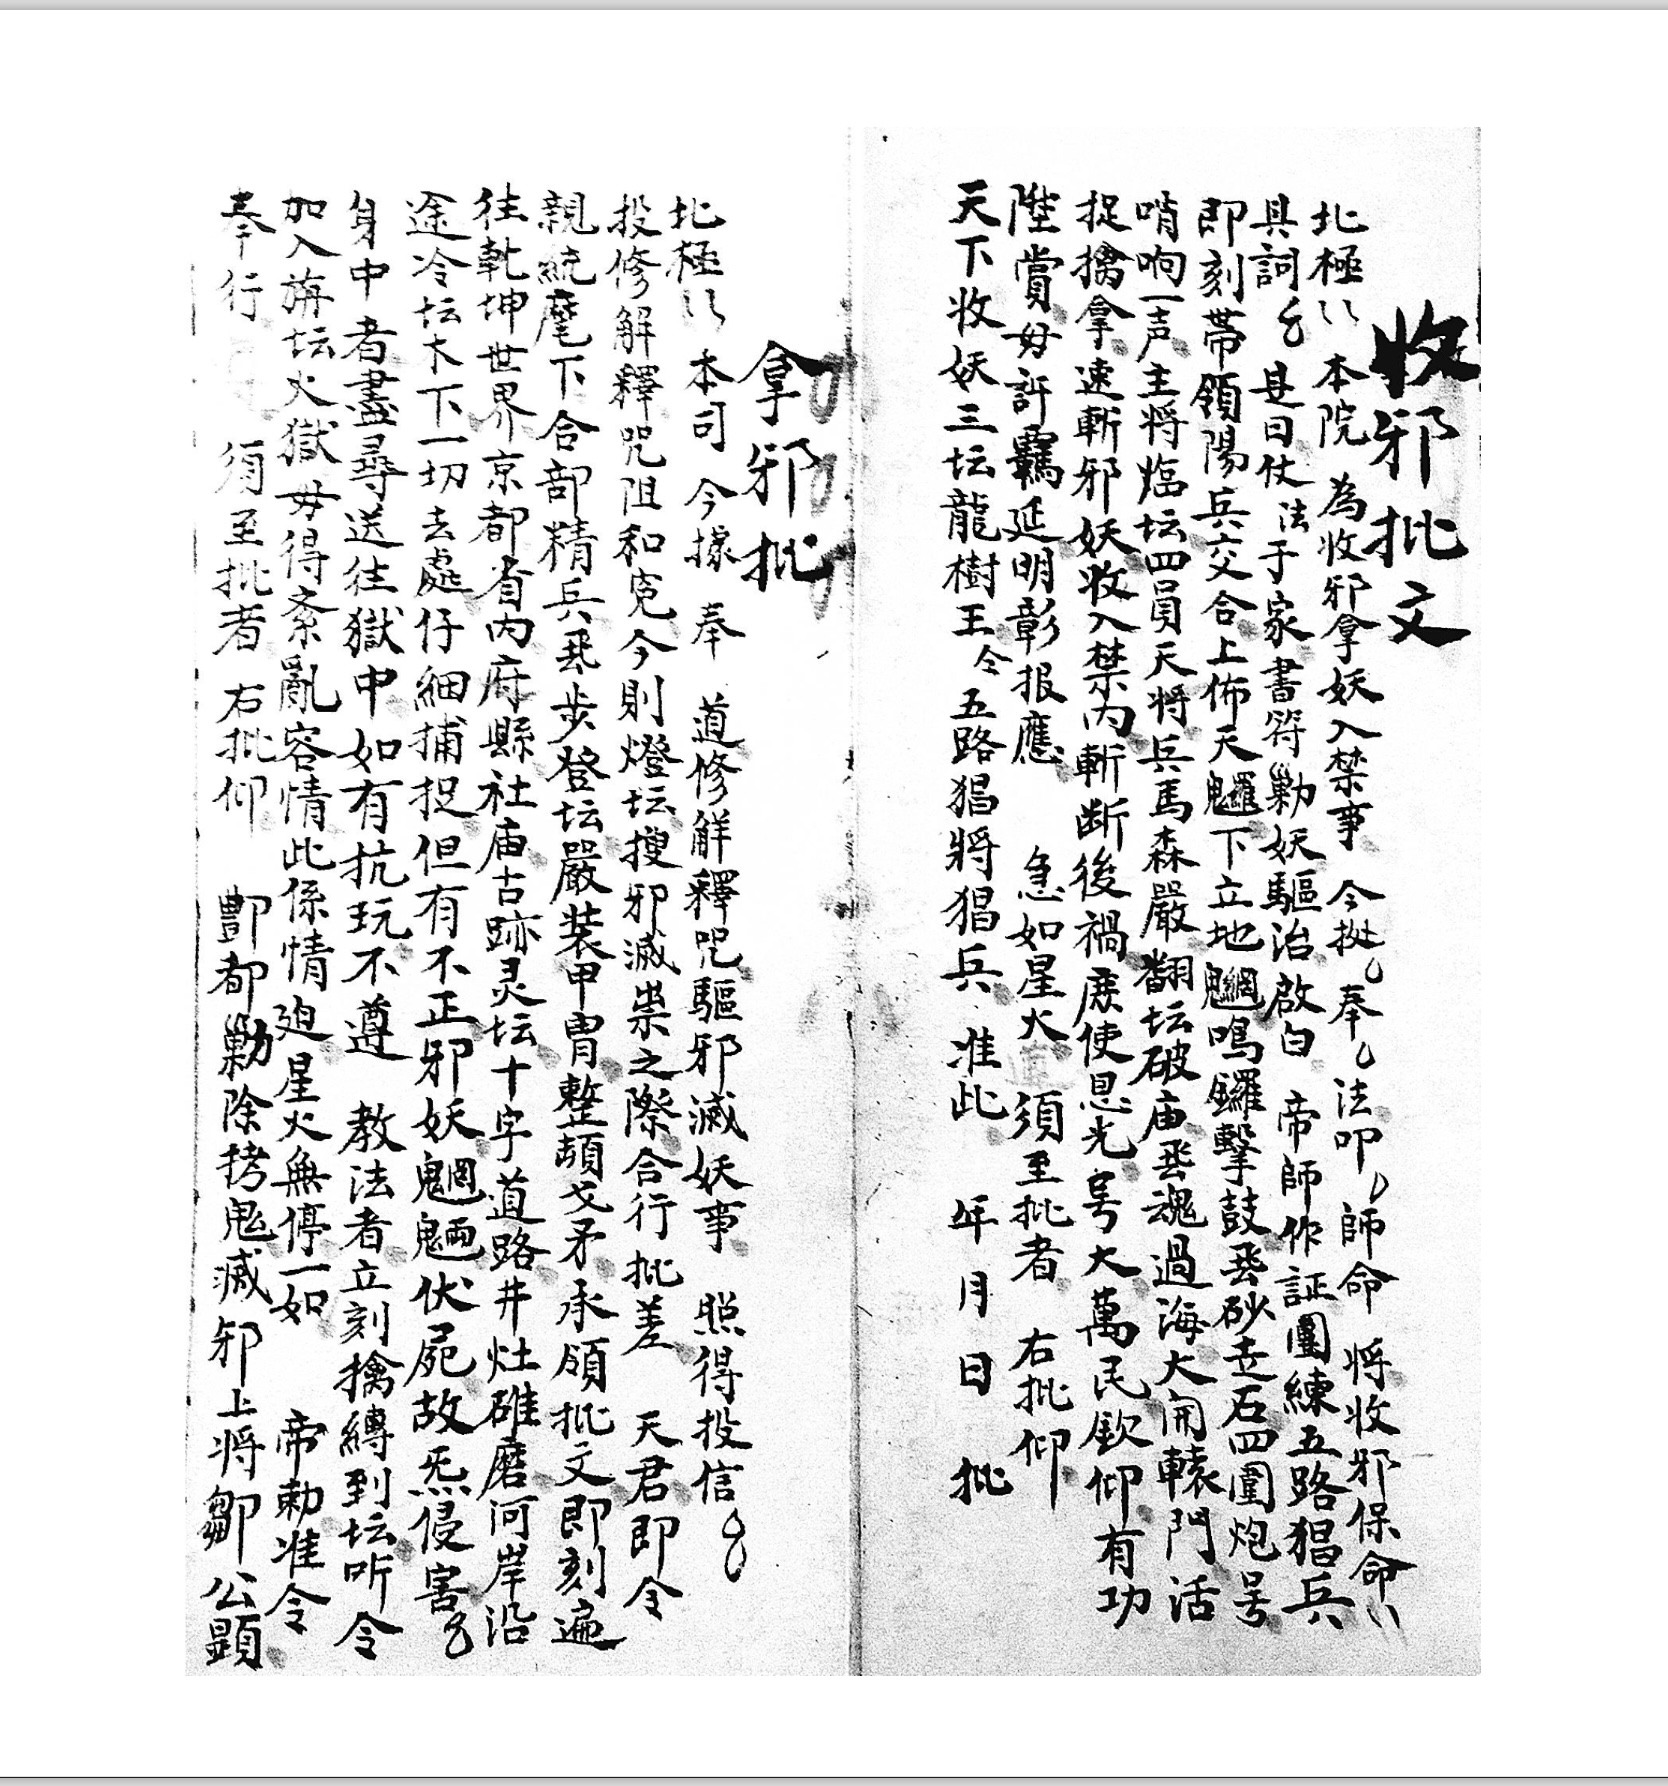 收邪批文
北極〻 本院 為收邪拿妖入禁事 今據 奉 法叩 師命 將收邪保命〻
具詞 是日仗法于家書符勦妖驅治啟白 帝師作証團練五路猖兵
即刻帶領陽兵交合上佈天羅下立地網鳴鑼擊鼓飛砂走石四圍炮号
哨响一声主將臨坛四員天將兵馬森嚴翻坛破庙飛魂過海大開轅門活
捉擒拿速斬邪妖收入禁內斬断後禍庶使恩光早大萬民欽仰有功
陞賞毋許羈延明彰报應 急如星火 須至批者 右批仰
天下收妖三坛龍樹王令 五路猖將猖兵 准此 年 月 日 批
拿邪批
北極〻 本司 今據 奉 道修解釋咒驅邪滅妖事 照得投信
投修解釋咒阻和寃今則燈坛搜邪滅祟之際合行批差 天君即令
親統麾下合部精兵飛步登坛嚴装甲冑整頓戈矛承領批文即刻遍
往乾坤世界京都省內府縣社庙古跡灵坛十字道路井灶碓磨河岸沿
途冷坛木下一切去處仔細捕捉但有不正邪妖魍魎伏屍故炁侵害
身中者盡尋送往獄中如有抗玩不遵 教法者立刻擒縛到坛听令
加入旃坛火獄毋得紊亂容情此係情廹星火無停一如 帝勅准令
奉行 須至批者 右批仰 酆都勦除拷鬼滅邪上將鄒公顕